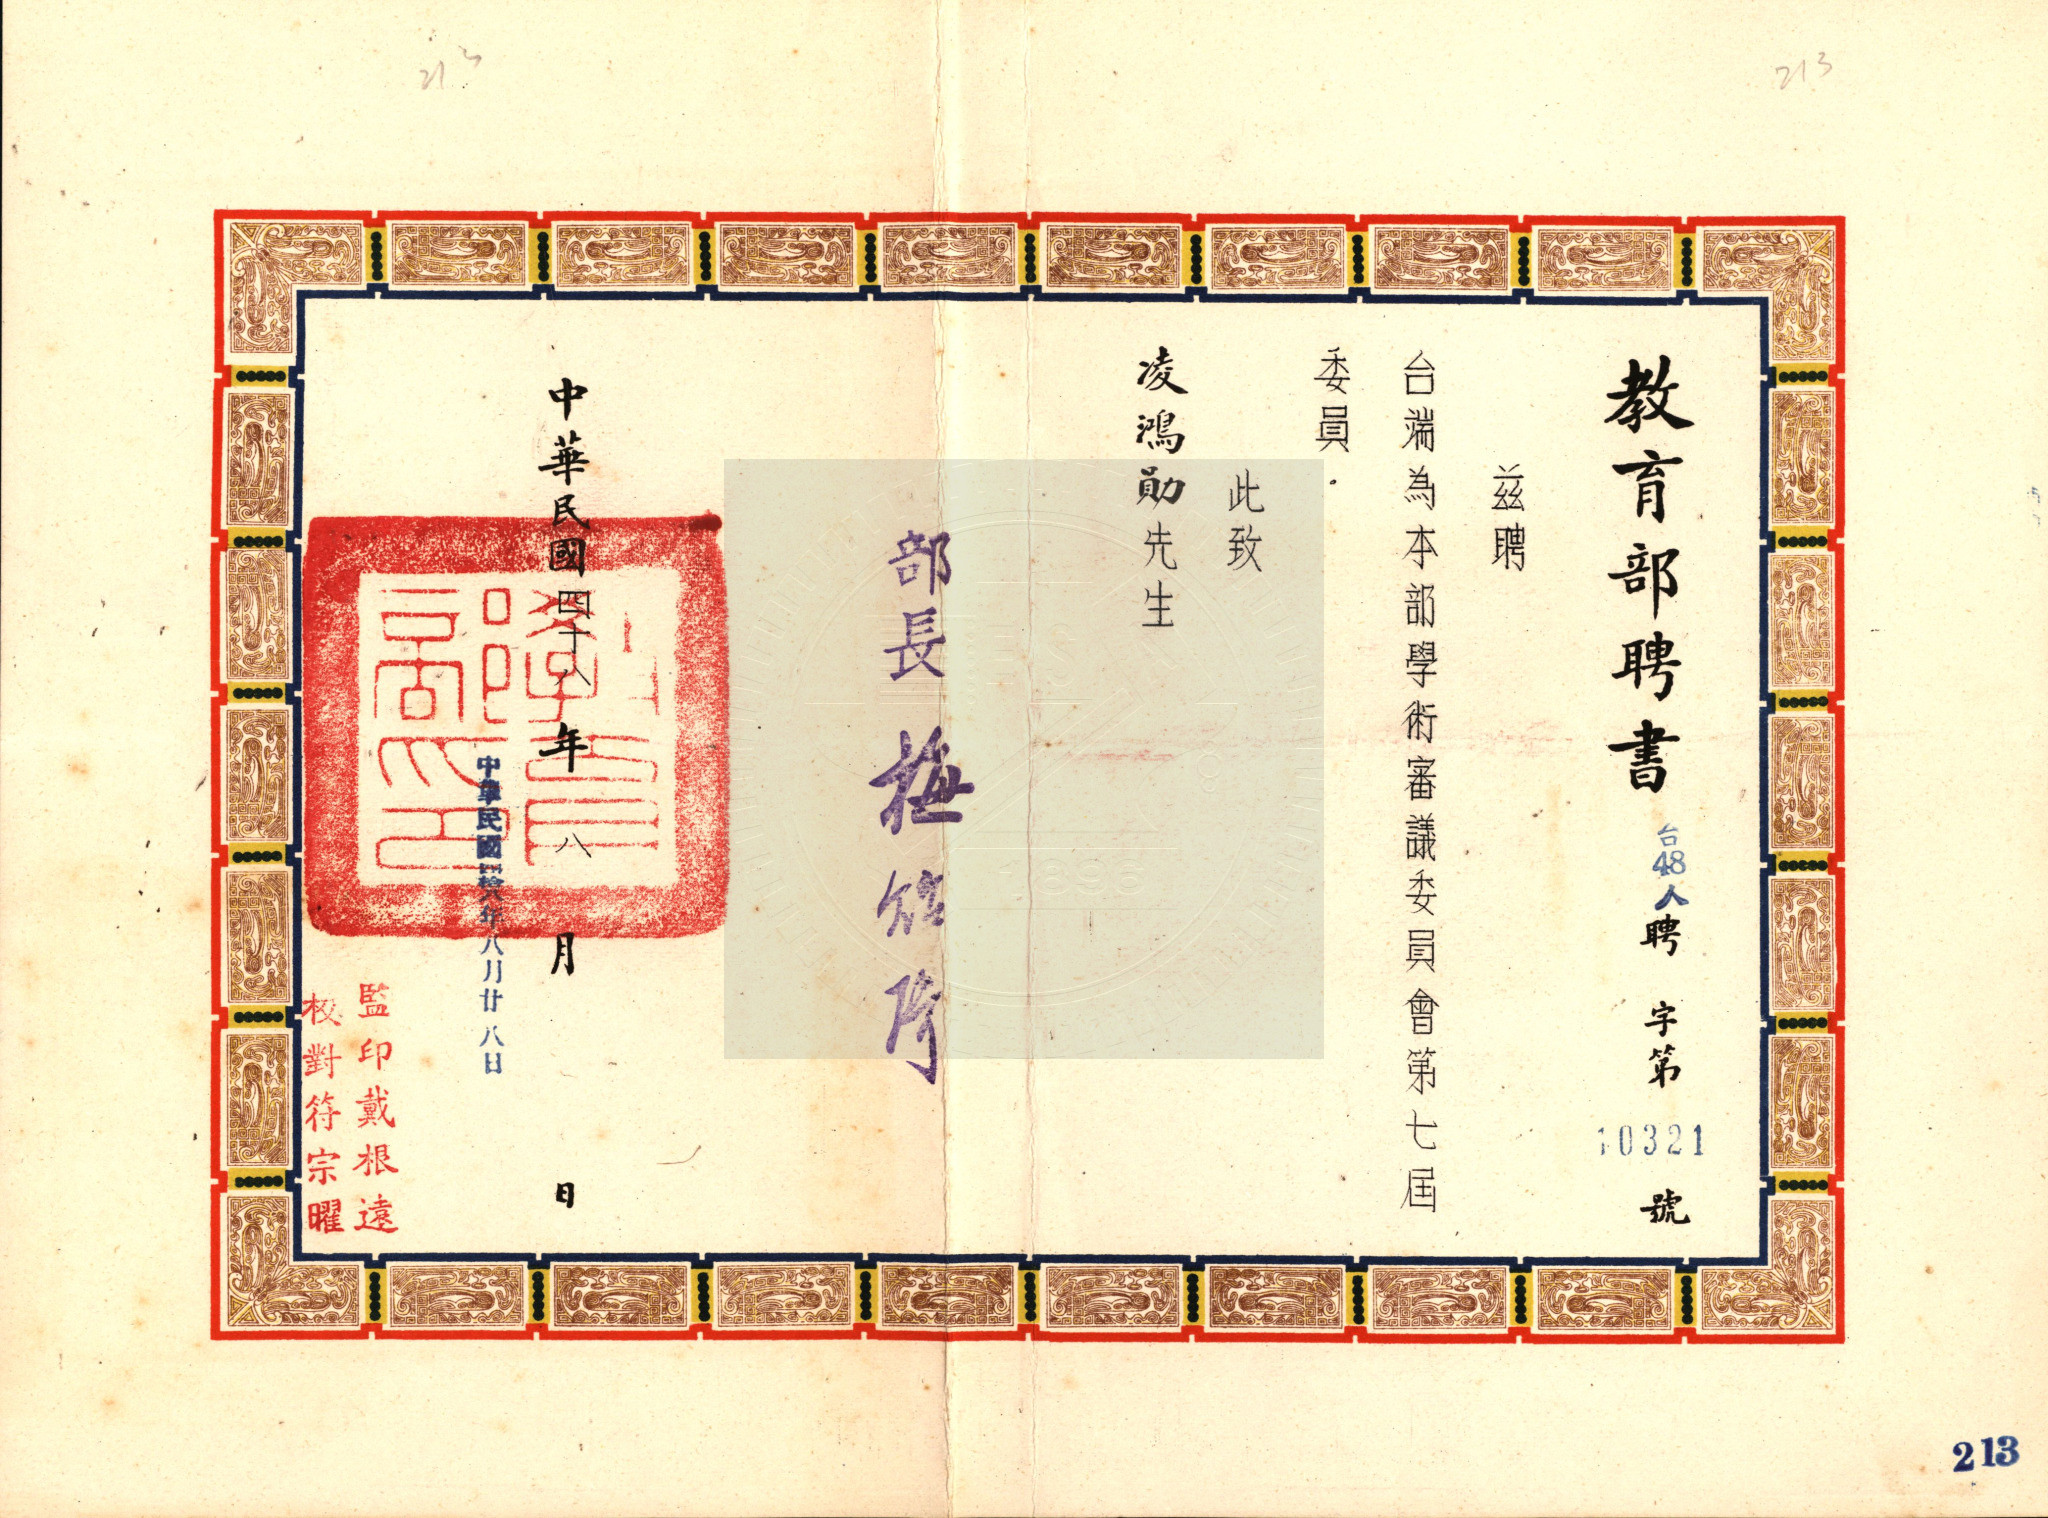 213
213
教育部聘書
台48人聘 字第 10321 號
茲聘
台端為本部學術審議委員會第七屆
委員.
此致
凌鴻勛先生
部長 梅貽琦
中華民國四十八年八月 日
中華民國四拾八年八月廿八日
監印戴根遠
校對符宗曜
教育部印
213